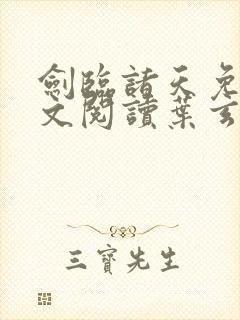 劍臨諸天免
文閱讀葉玄
三寶先生